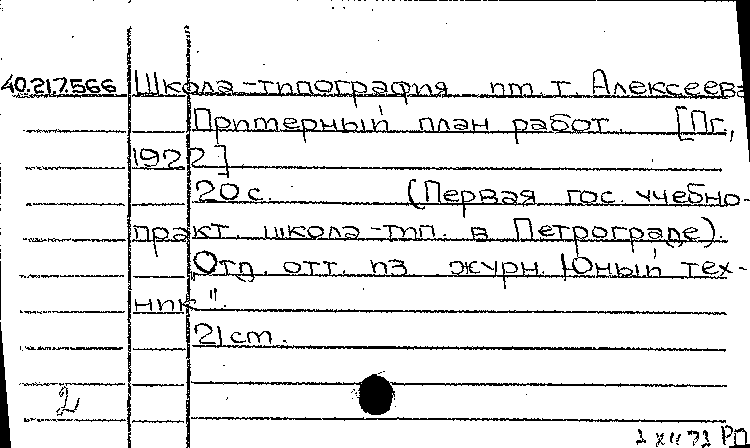 40.217.566 Школа-типография им. т. Алексеева
Примерный план работ. [Пг.,
1922]
20 с. (Первая гос. учебно-
практ. школа-тип. в Петрограде).
Отд. отт. из журн. "Юный тех-
ник".
21 cm.
2
2 XII 72 РП